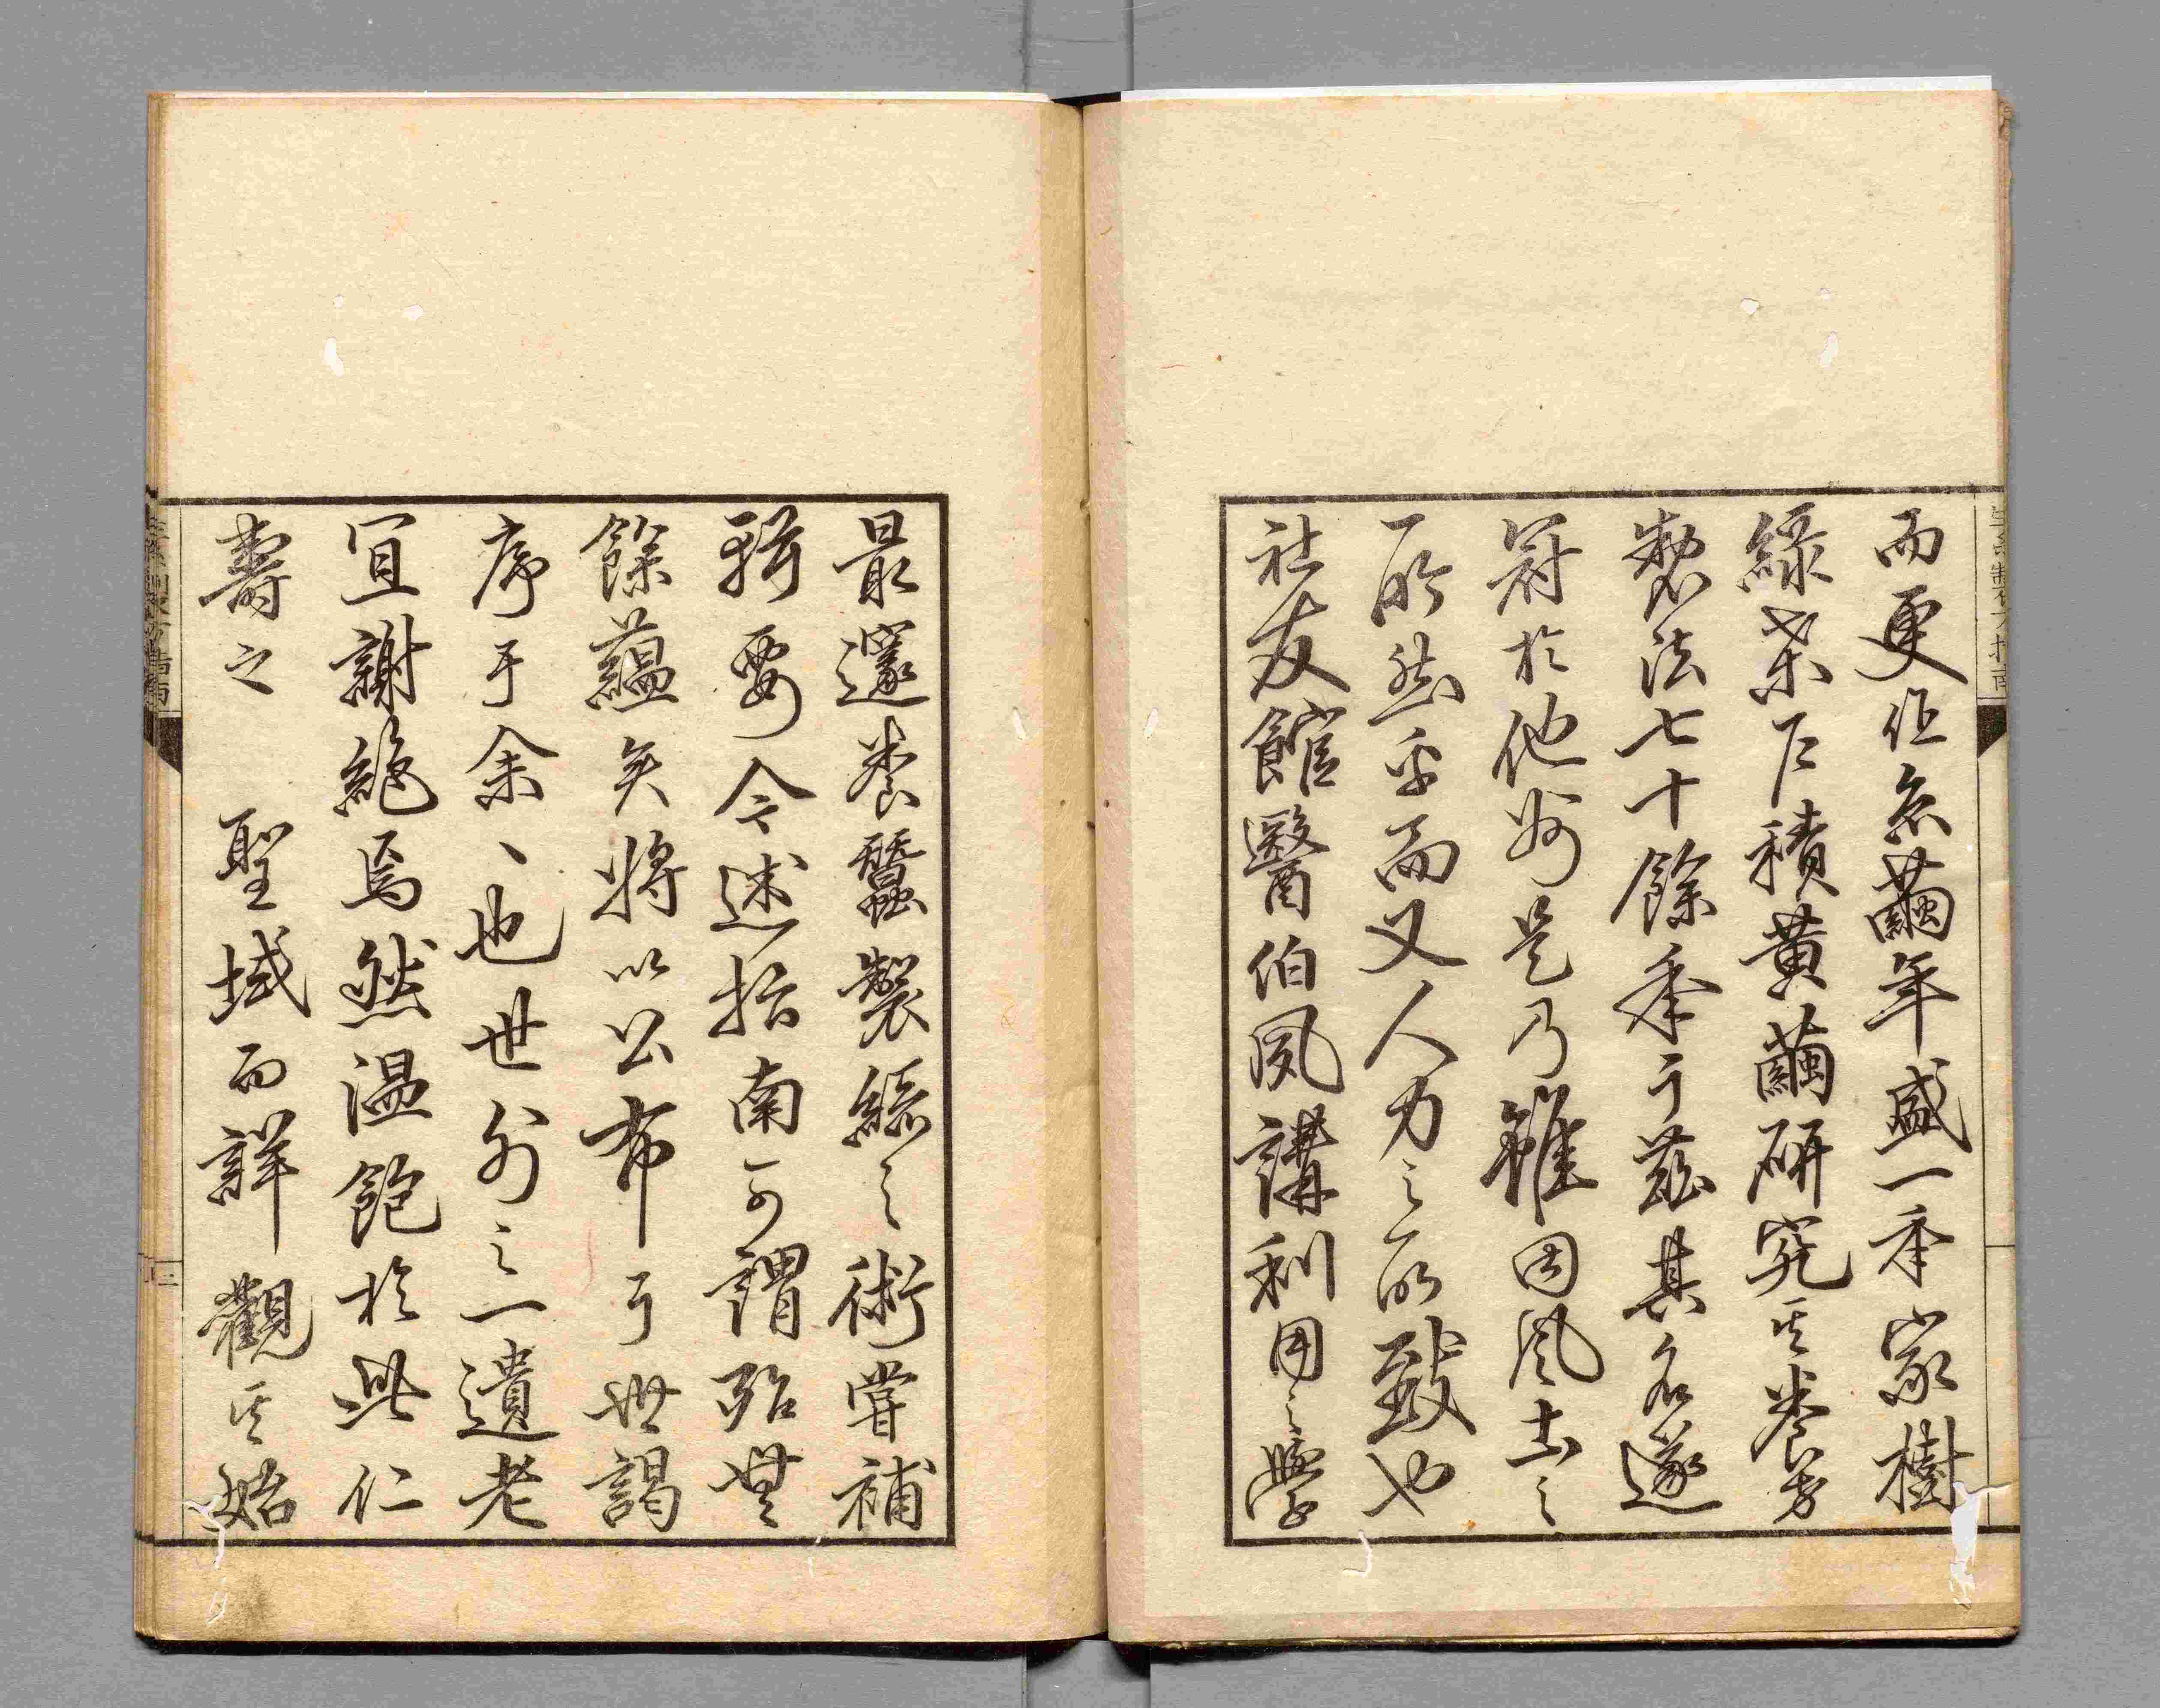 而更作糸繭年盛一季家樹
緑桒戸積黄繭研究其養方
製法七十餘季于茲其名遂
冠於他州是乃雖因風土之
所然乎而又人力之所致也
社友館醫伯夙講利用之學
最邃養蠶製絲之術嘗補
輯要今述指南可謂殆無
餘蘊矣將以公布于世謁
序于余、也世外之一遺老
宜謝絶焉然温飽於此仁
壽之 聖域而詳觀其始